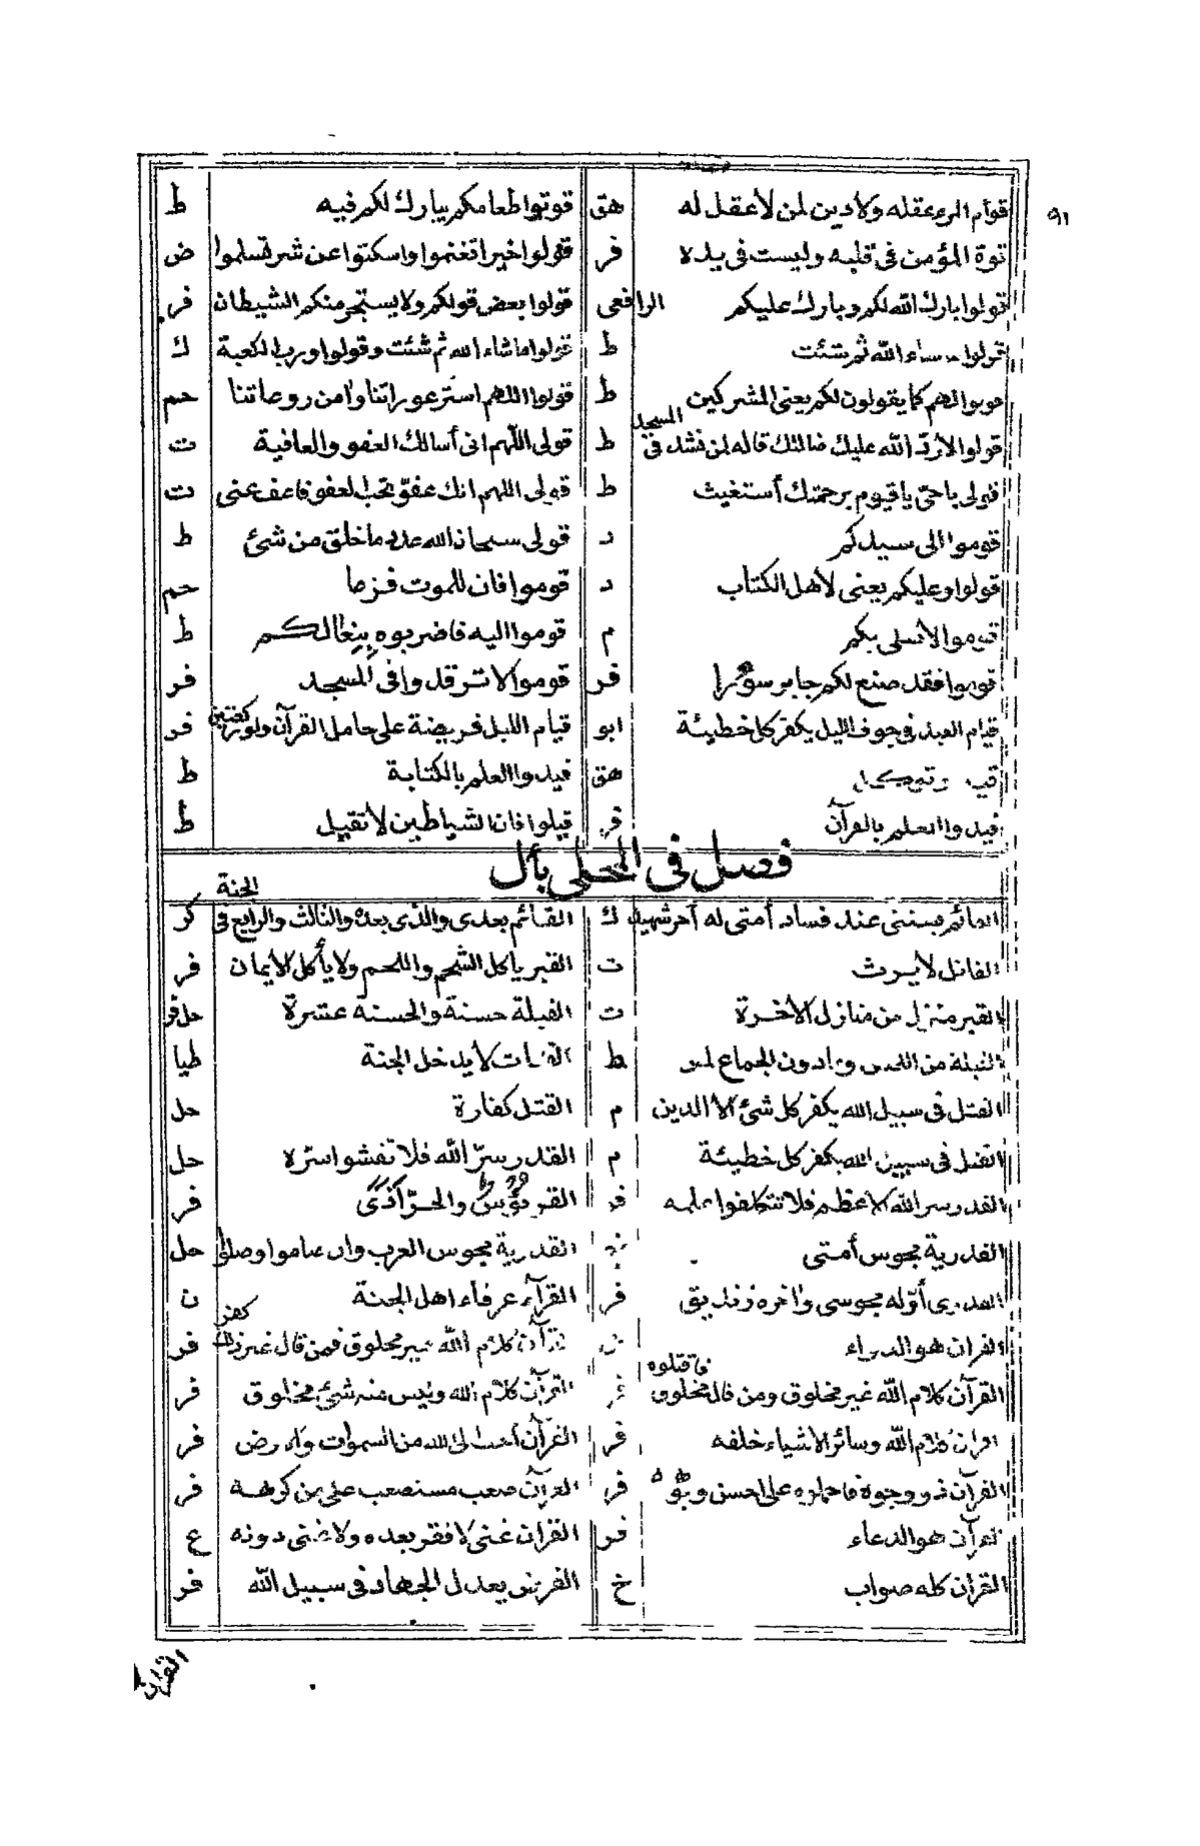 ٩١
قوام المرء عقله ولا دين لمن لا عقل له هق قوتوا طعامكم يبارك لكم فيه ط
قوة المؤمن في قلبه وليست في يده فر قولوا خيرا تغنموا واسكتوا عن شر تسلموا ض
قولوا بارك الله لكم وبارك عليكم الرافعى قولوا بعض قولكم ولا يستجر منكم الشيطان فر
قولوا ما شاء الله ثم شئت ط قولوا ما شاء الله ثم شئت وقولوا ورب الكعبة ك
قولوا لهم كما يقولون لكم يعنى المشركين ط قولوا اللهم استر عوراتنا وامن روعاتنا حم
قولوا لا رد الله عليك ضالتك قاله لمن نشد في المسجد ط قولى اللهم انى أسالك العفو والعافية ت
قولى يا حي يا قيوم برحمتك أستغيث ط قولى اللهم انك عفو تحب العفو فاعف عنى ت
قوموا الى سيدكم د قولى سبحان الله عدد ما خلق من شئ ط
قولوا وعليكم يعنى لأهل الكتاب د قوموا فان للموت فزعا حم
قوموا لاصلى بكم م قوموا اليه فاضربوه بنعالكم ط
قوموا فقد صنع لكم جابر سؤرا فر قوموا لا ترقدوا في المسجد فر
قيام العبد في جوف الليل يكفر كل خطيئة ابو قيام الليل فريضة على حامل القرآن ولو ركعتين فر
قيد وتوكل هق قيدوا العلم بالكتابة ط
قيدوا العلم بالقرآن فر قيلوا فان الشياطين لا تقيل ط
فصل في المحلى بأل
القائم بسنتى عند فساد أمتى له أجر شهيد ك القائم بعدى والذى بعده والثالث والرابع في الجنة كر
القاتل لا يرث ت القبر يأكل الشحم واللحم ولا يأكل الايمان فر
القبر منزل من منازل الآخرة ت القبلة حسنة والحسنة عشرة حل فر
القبلة من اللمس دون الجماع لمس ط القتات لا يدخل الجنة طيا
القتل في سبيل الله يكفر كل شئ الا الدين م القتل كفارة حل
القتل في سبيل الله يكفر كل خطيئة م القدر سر الله فلا تفشوا سره حل
القدر سر الله الاعظم فلا تتكلفوا علمه فر القر بؤس والحر أذى فر
القدرية مجوس أمتى القدرية مجوس العرب وان صاموا وصلوا حل
القدرى أوله مجوسى وآخره زنديق فر القرآء عرفاء اهل الجنة ن
القرآن هو الدواء القرآن كلام الله غير مخلوق فمن قال غير ذلك كفر فر
القرآن كلام الله غير مخلوق ومن قال مخلوق فاقتلوه فر القرآن كلام الله وليس منه شئ مخلوق فر
القرآن كلام الله وسائر الاشياء خلقه فر القرآن أحب الى الله من السموات والارض فر
القرآن ذو وجوه فاحملوه على احسن وجوهه فر القرآن صعب مستصعب على من كرهه فر
القرآن هو الدعاء فر القرآن غنى لا فقر بعده ولا غنى دونه ع
القرآن كله صواب خ القرض يعدل الجهاد في سبيل الله فر
القرآن